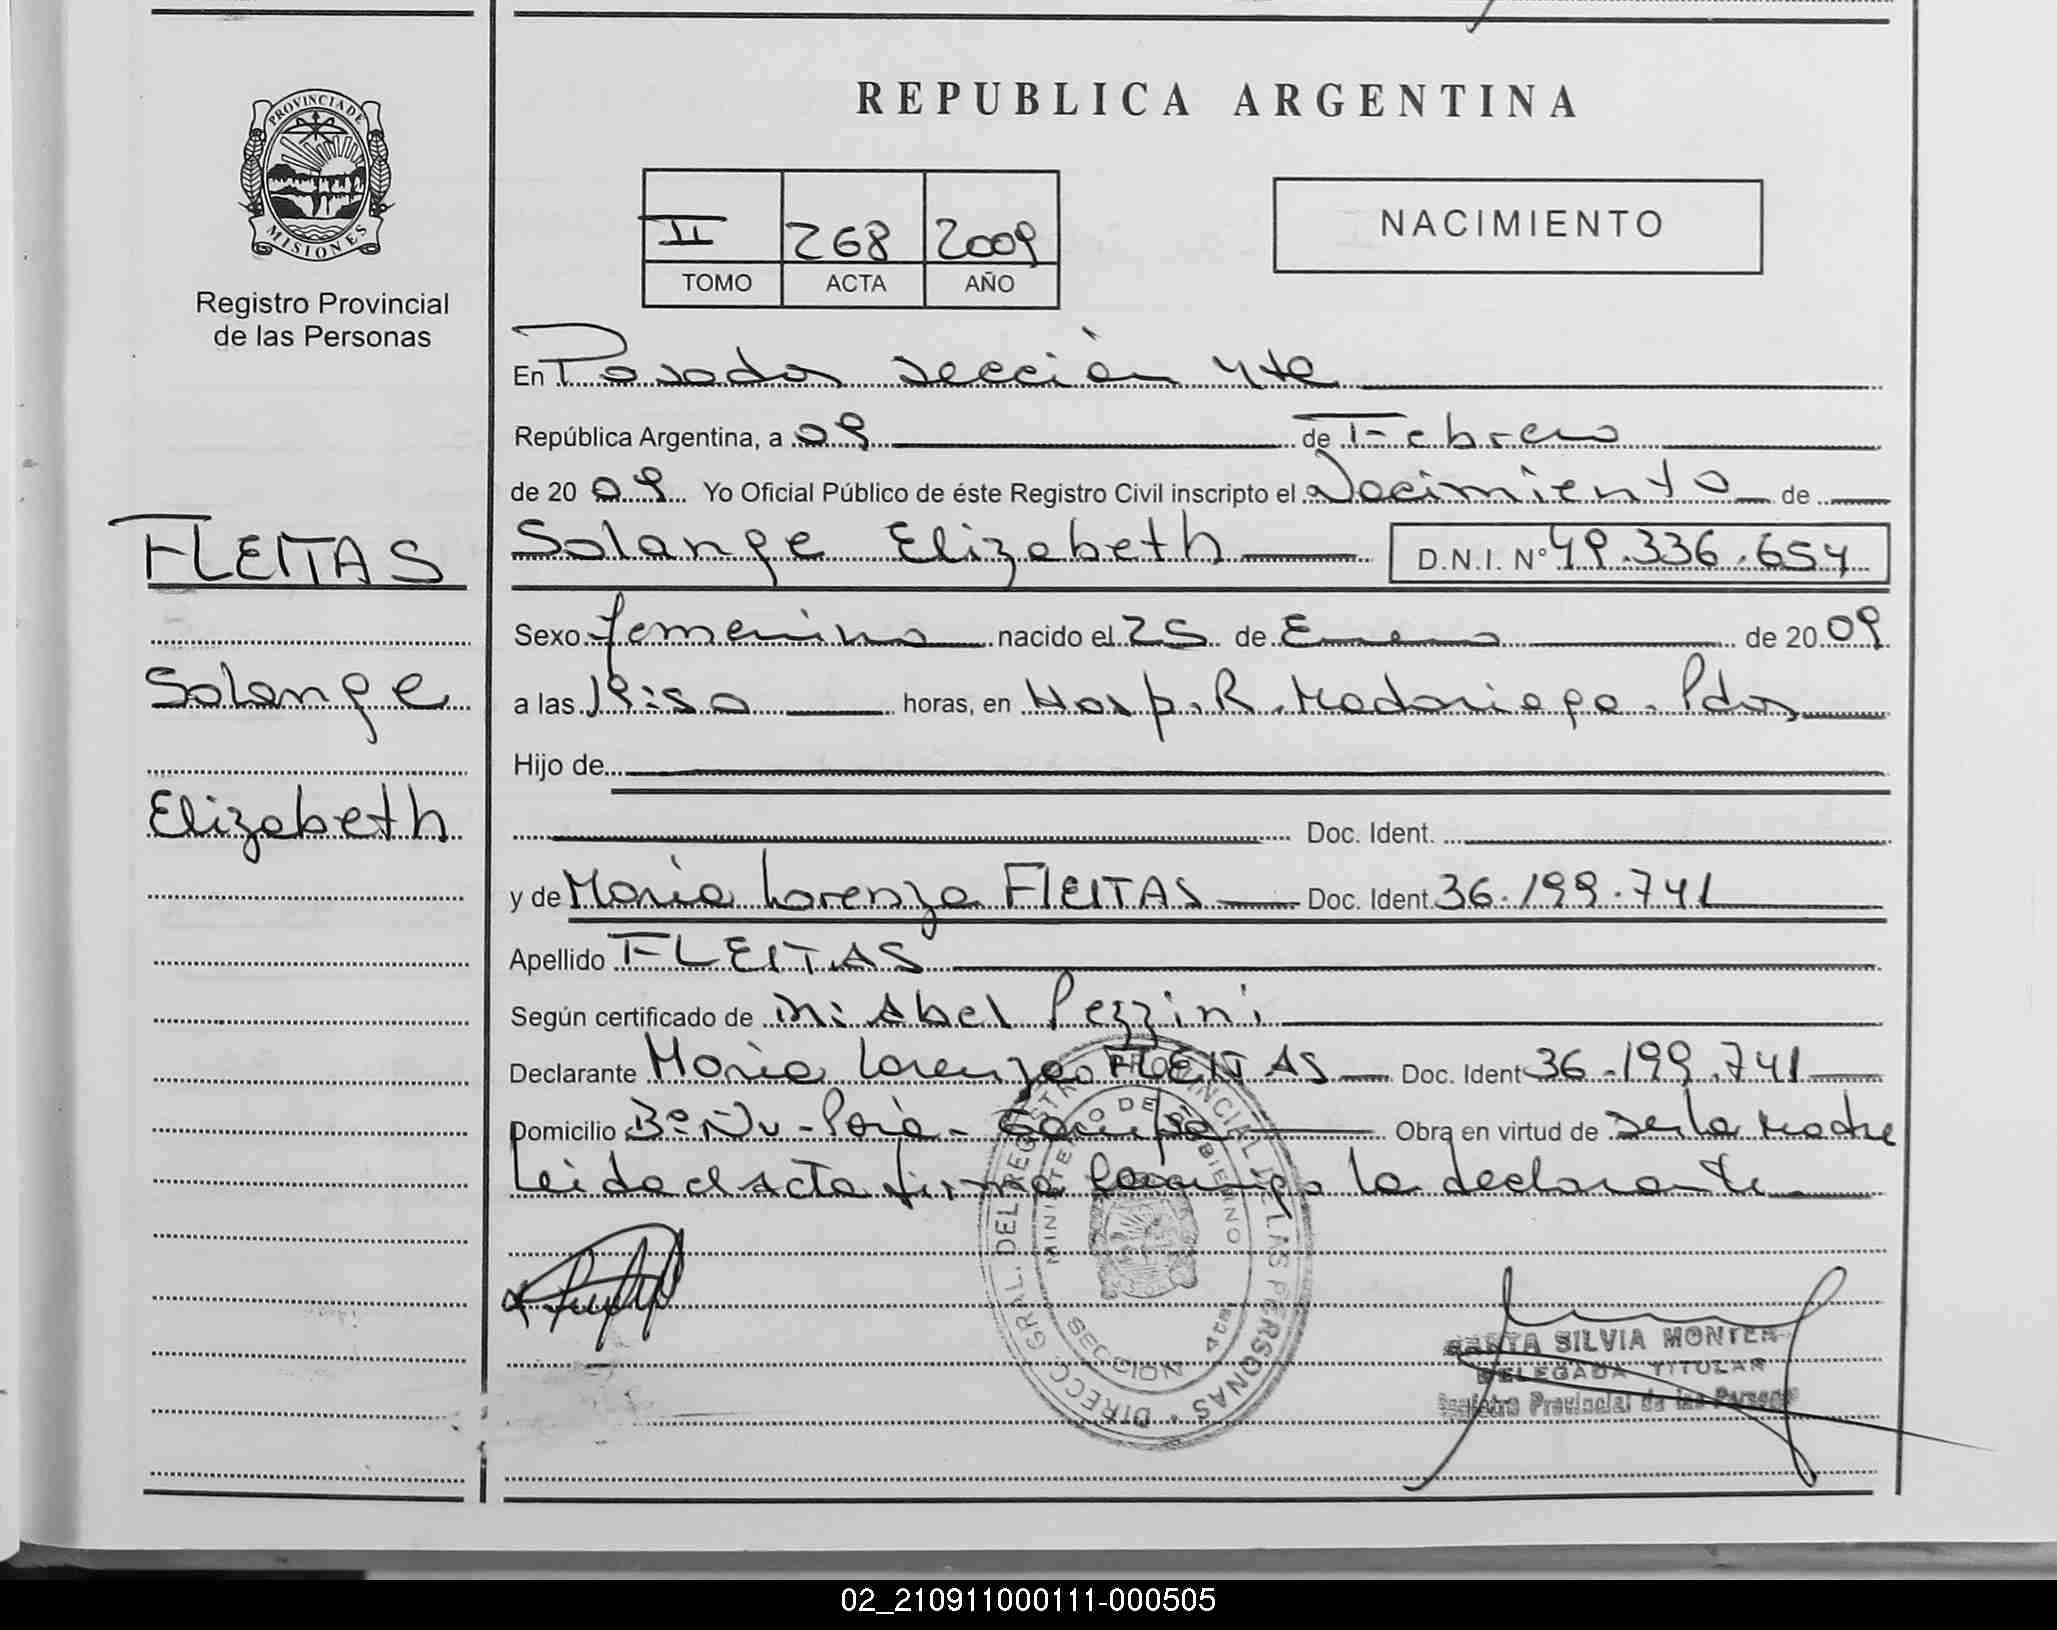 REPUBLICA ARGENTINA
PROVINCIA DE
MISIONES
Registro Provincial
de las Personas
NACIMIENTO
II 268 2009
TOMO ACTA AÑO
En Posadas sección 4ta
República Argentina, a 09 de Febrero
de 2009 Yo Oficial Público de éste Registro Civil inscripto el Nacimiento de
FLEITAS
Solange Elizabeth D.N.I. Nº 49.336.654
Sexo femenino nacido el 25 de Enero de 2009
Solange
a las 19:50 horas, en Hosp. R. Madariaga. Pdas
Hijo de
Elizabeth
Doc. Ident.
y de Maria Lorenza FLEITAS Doc. Ident 36.199.741
Apellido FLEITAS
Según certificado de Mi Abel Pezzini
Declarante Maria Lorenza FLEITAS Doc. Ident 36.199.741
Domicilio Bº Ñu-Porà - Garupá Obra en virtud de ser la Madre
Leida el Acta firma conmigo la declarante
DIRECC. GRAL. DEL REGISTRO PROVINCIAL DE LAS PERSONAS
MINISTERIO DE GOBIERNO
SECCION 4ta
SILVIA
DELEGADA TITULAR
Registro Provincial de las Personas
02_210911000111-000505